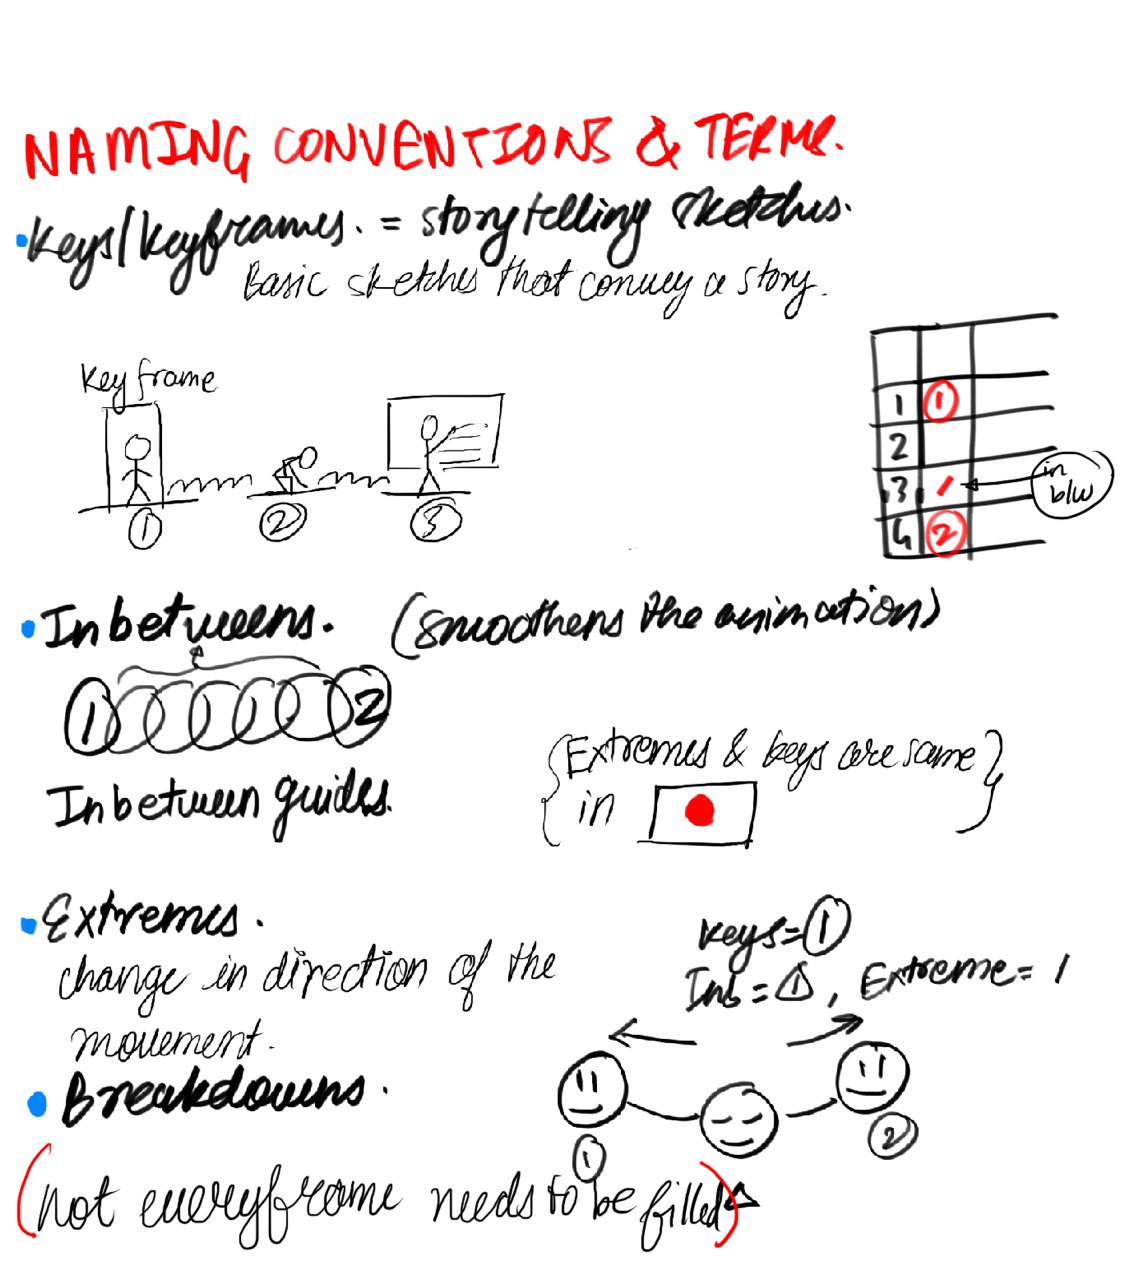 NAMING CONVENTIONS & TERMS.
Keys/Keyframes. = storytelling sketches.
Basic sketches that convey a story.
Key frame
1 2 3
1 1
2
3 /
in b/w
4 2
Inbetweens. (smoothens the animation)
1 2
Inbetween guides.
{Extremes & keys are same}
in
Extremes.
change in direction of the
movement.
keys = 1
Inb = 1, Extreme = 1
Breakdowns.
1 2
(not everyframe needs to be filled)